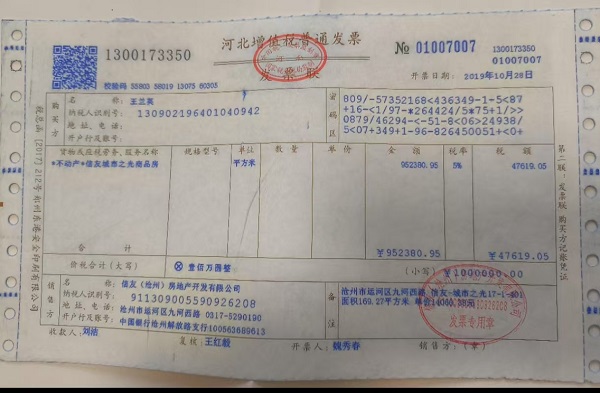 河北增值税普通发票
发票联
1300173350
№ 01007007
1300173350
01007007
校验码 55803 56019 13075 60305
开票日期: 2019年10月28日
购买方
名 称: 王兰英
纳税人识别号: 130902196401040942
地 址、电 话:
开户行及账号:
密码区
809/-57352168<436349-1-5<87
+16-<1/97-*264424/5*75+1/>>
0879/46294-<-51-8<06>24938/
5<07+349+1-96-826450051+<0+
货物或应税劳务、服务名称 规格型号 单位 数 量 单 价 金 额 税率 税 额
*不动产*信友城市之光商品房 平方米 952380.95 5% 47619.05
合 计 ¥952380.95 ¥47619.05
价税合计(大写) ⊗ 壹佰万圆整 (小写) ¥1000000.00
销售方
名 称: 信友(沧州)房地产开发有限公司
纳税人识别号: 911309005590926208
地 址、电 话: 沧州市运河区九河西路 0317-5290190
开户行及账号: 中国银行沧州解放路支行100563689613
备注
沧州市运河区九河西路 信友-城市之光17-1-401
面积169.27平方米
发票专用章
收款人: 刘洁 复核: 王红毅 开票人: 魏秀春 销售方:(章)
第二联:发票联 购买方记账凭证